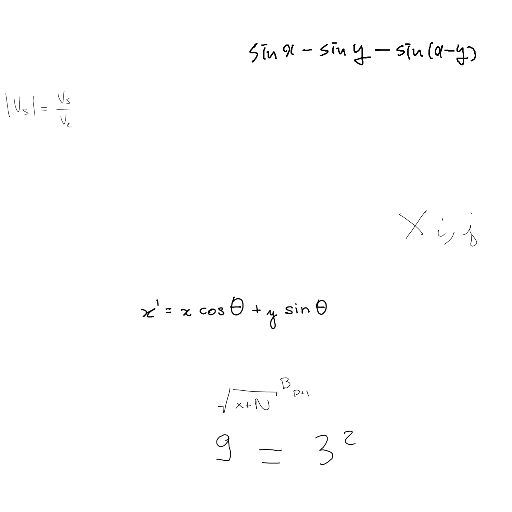 sin x − sin y − sin(x−y)
|V_s| = V_s/V_c
X_{i,j}
x' = x cos θ + y sin θ
√(x+N)^{B_{p+1}}
9 = 3²